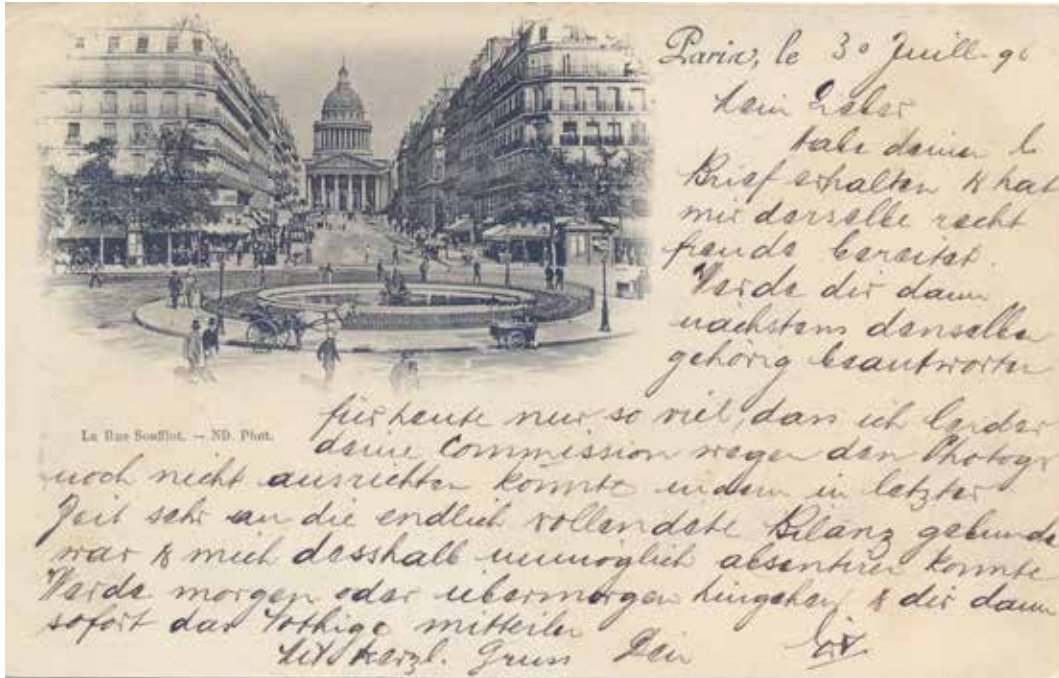 Paris, le 30 Juill. 9
Mein Lieber
Habe deinen l
Brief erhalten & hat
mir derselbe recht
freude bereitet.
Werde dir dann
nächstens denselben
gehörig beantworten
für heute nur so viel, dass ich leider
La Rue Soufflot. — ND. Phot.
deine Commission wegen den Photogr
noch nicht ausrichten konnte indem in letzter
Zeit sehr an die endlich vollendete Bilanz gebunde
war & mich desshalb unmöglich absentiren konnte
Werde morgen oder übermorgen hingehen & dir dann
sofort das Nöthige mitteilen
Mit herzl. Gruss Dein